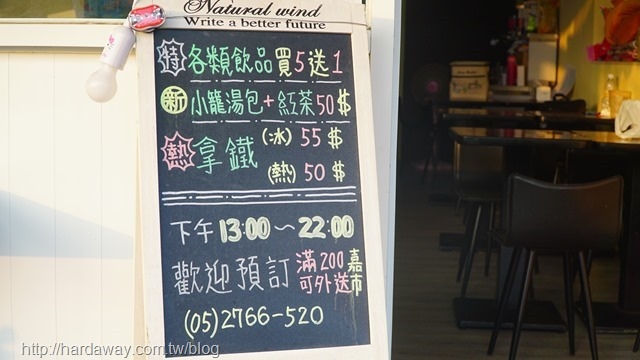 Natural wind
Write a better future
特 各類飲品買5送1
新 小籠湯包+紅茶50$
熱 拿鐵 (冰) 55 $
(熱) 50 $
下午 13:00~22:00
歡迎預訂 滿200可外送 嘉市
(05)2766-520
http://hardaway.com.tw/blog